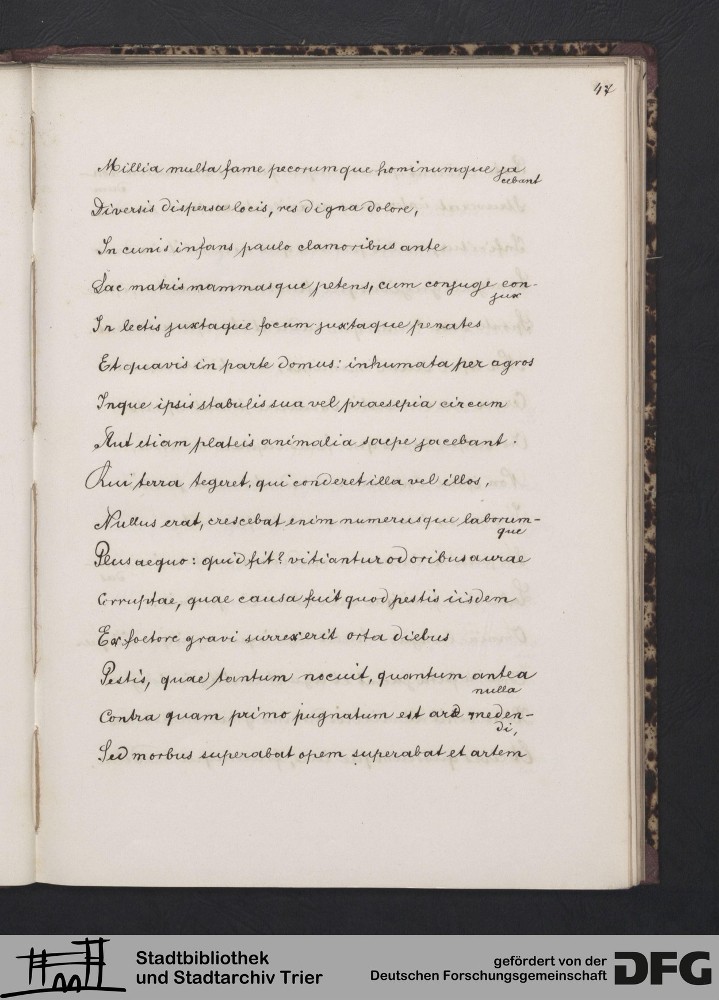 47
Millia multa fame pecorumque hominumque ja
cebant
Diversis dispersa locis, res digna dolore,
In cunis infans paulo clamoribus ante
Lac matris mammasque petens, cum conjuge con-
jux
In lectis juxtaque focum juxtaque penates
Et quavis in parte domus: inhumata per agros
Inque ipsis stabulis sua vel praesepia circum
Aut etiam plateis animalia saepe jacebant.
Qui terra tegeret, qui conderet illa vel illos,
Nullus erat, crescebat enim numerusque laborum-
que
Plus aequo: quid fit? vitiantur odoribus aurae
Corruptae, quae causa fuit quod pestis iisdem
Ex foetore gravi surrexerit orta diebus
Pestis, quae tantum nocuit, quantum antea
nulla
Contra quam primo pugnatum est arte meden-
di,
Sed morbus superabat opem superabat et artem
Stadtbibliothek
und Stadtarchiv Trier
gefördert von der
Deutschen Forschungsgemeinschaft
DFG